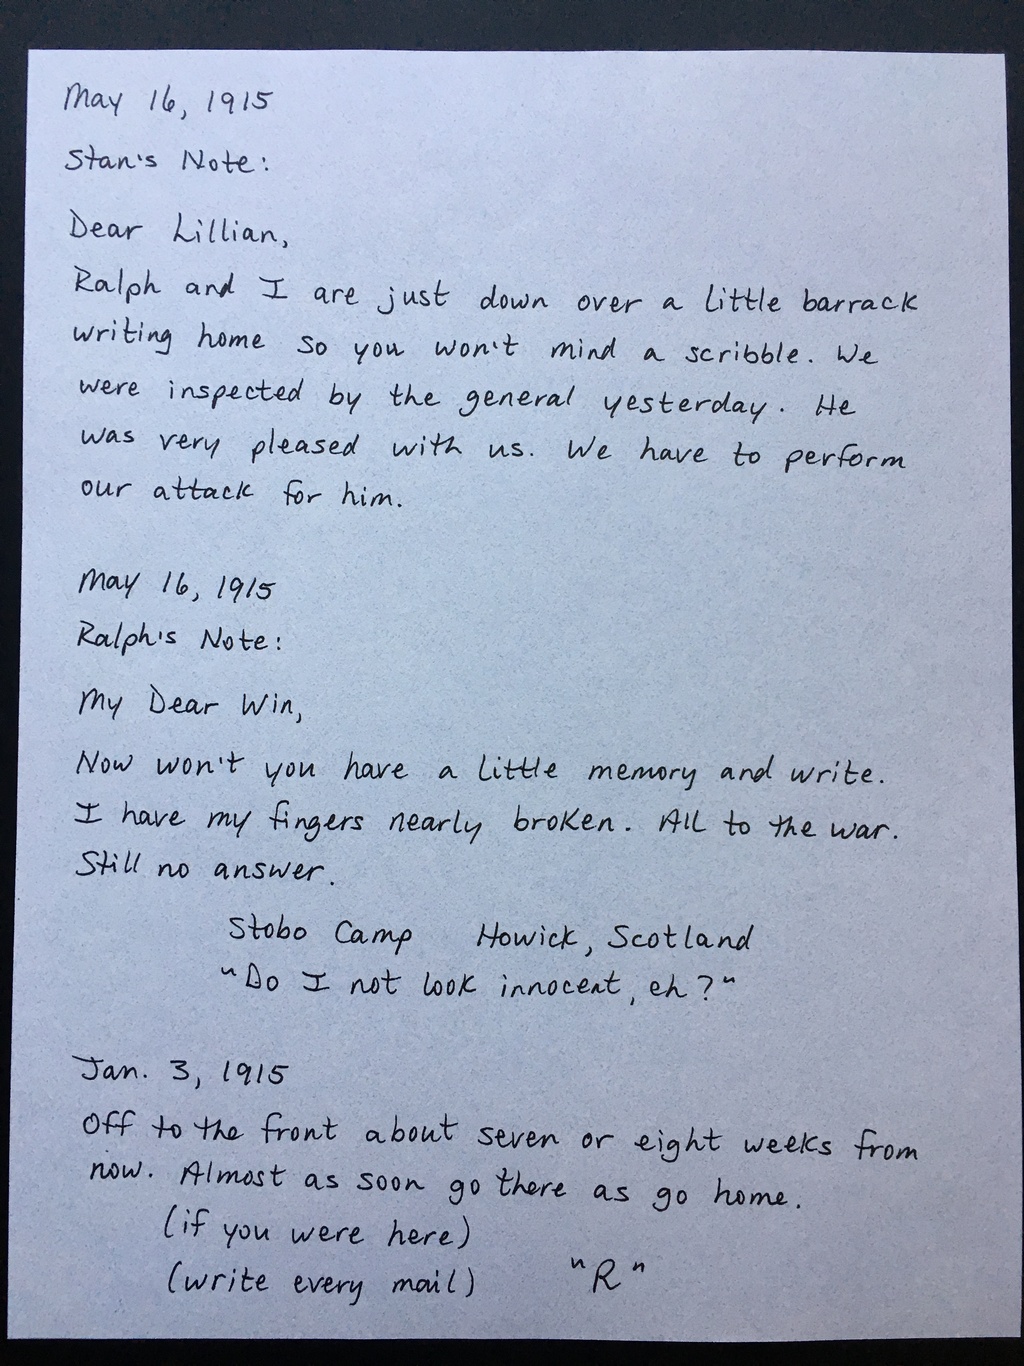 May 16, 1915
Stan's Note:
Dear Lillian,
Ralph and I are just down over a little barrack
writing home so you won't mind a scribble. We
were inspected by the general yesterday. He
was very pleased with us. We have to perform
our attack for him.
May 16, 1915
Ralph's Note:
My Dear Win,
Now won't you have a little memory and write.
I have my fingers nearly broken. All to the war.
Still no answer.
Stobo Camp Howick, Scotland
"Do I not look innocent, eh?"
Jan. 3, 1915
Off to the front about seven or eight weeks from
now. Almost as soon go there as go home.
(if you were here)
(write every mail) "R"